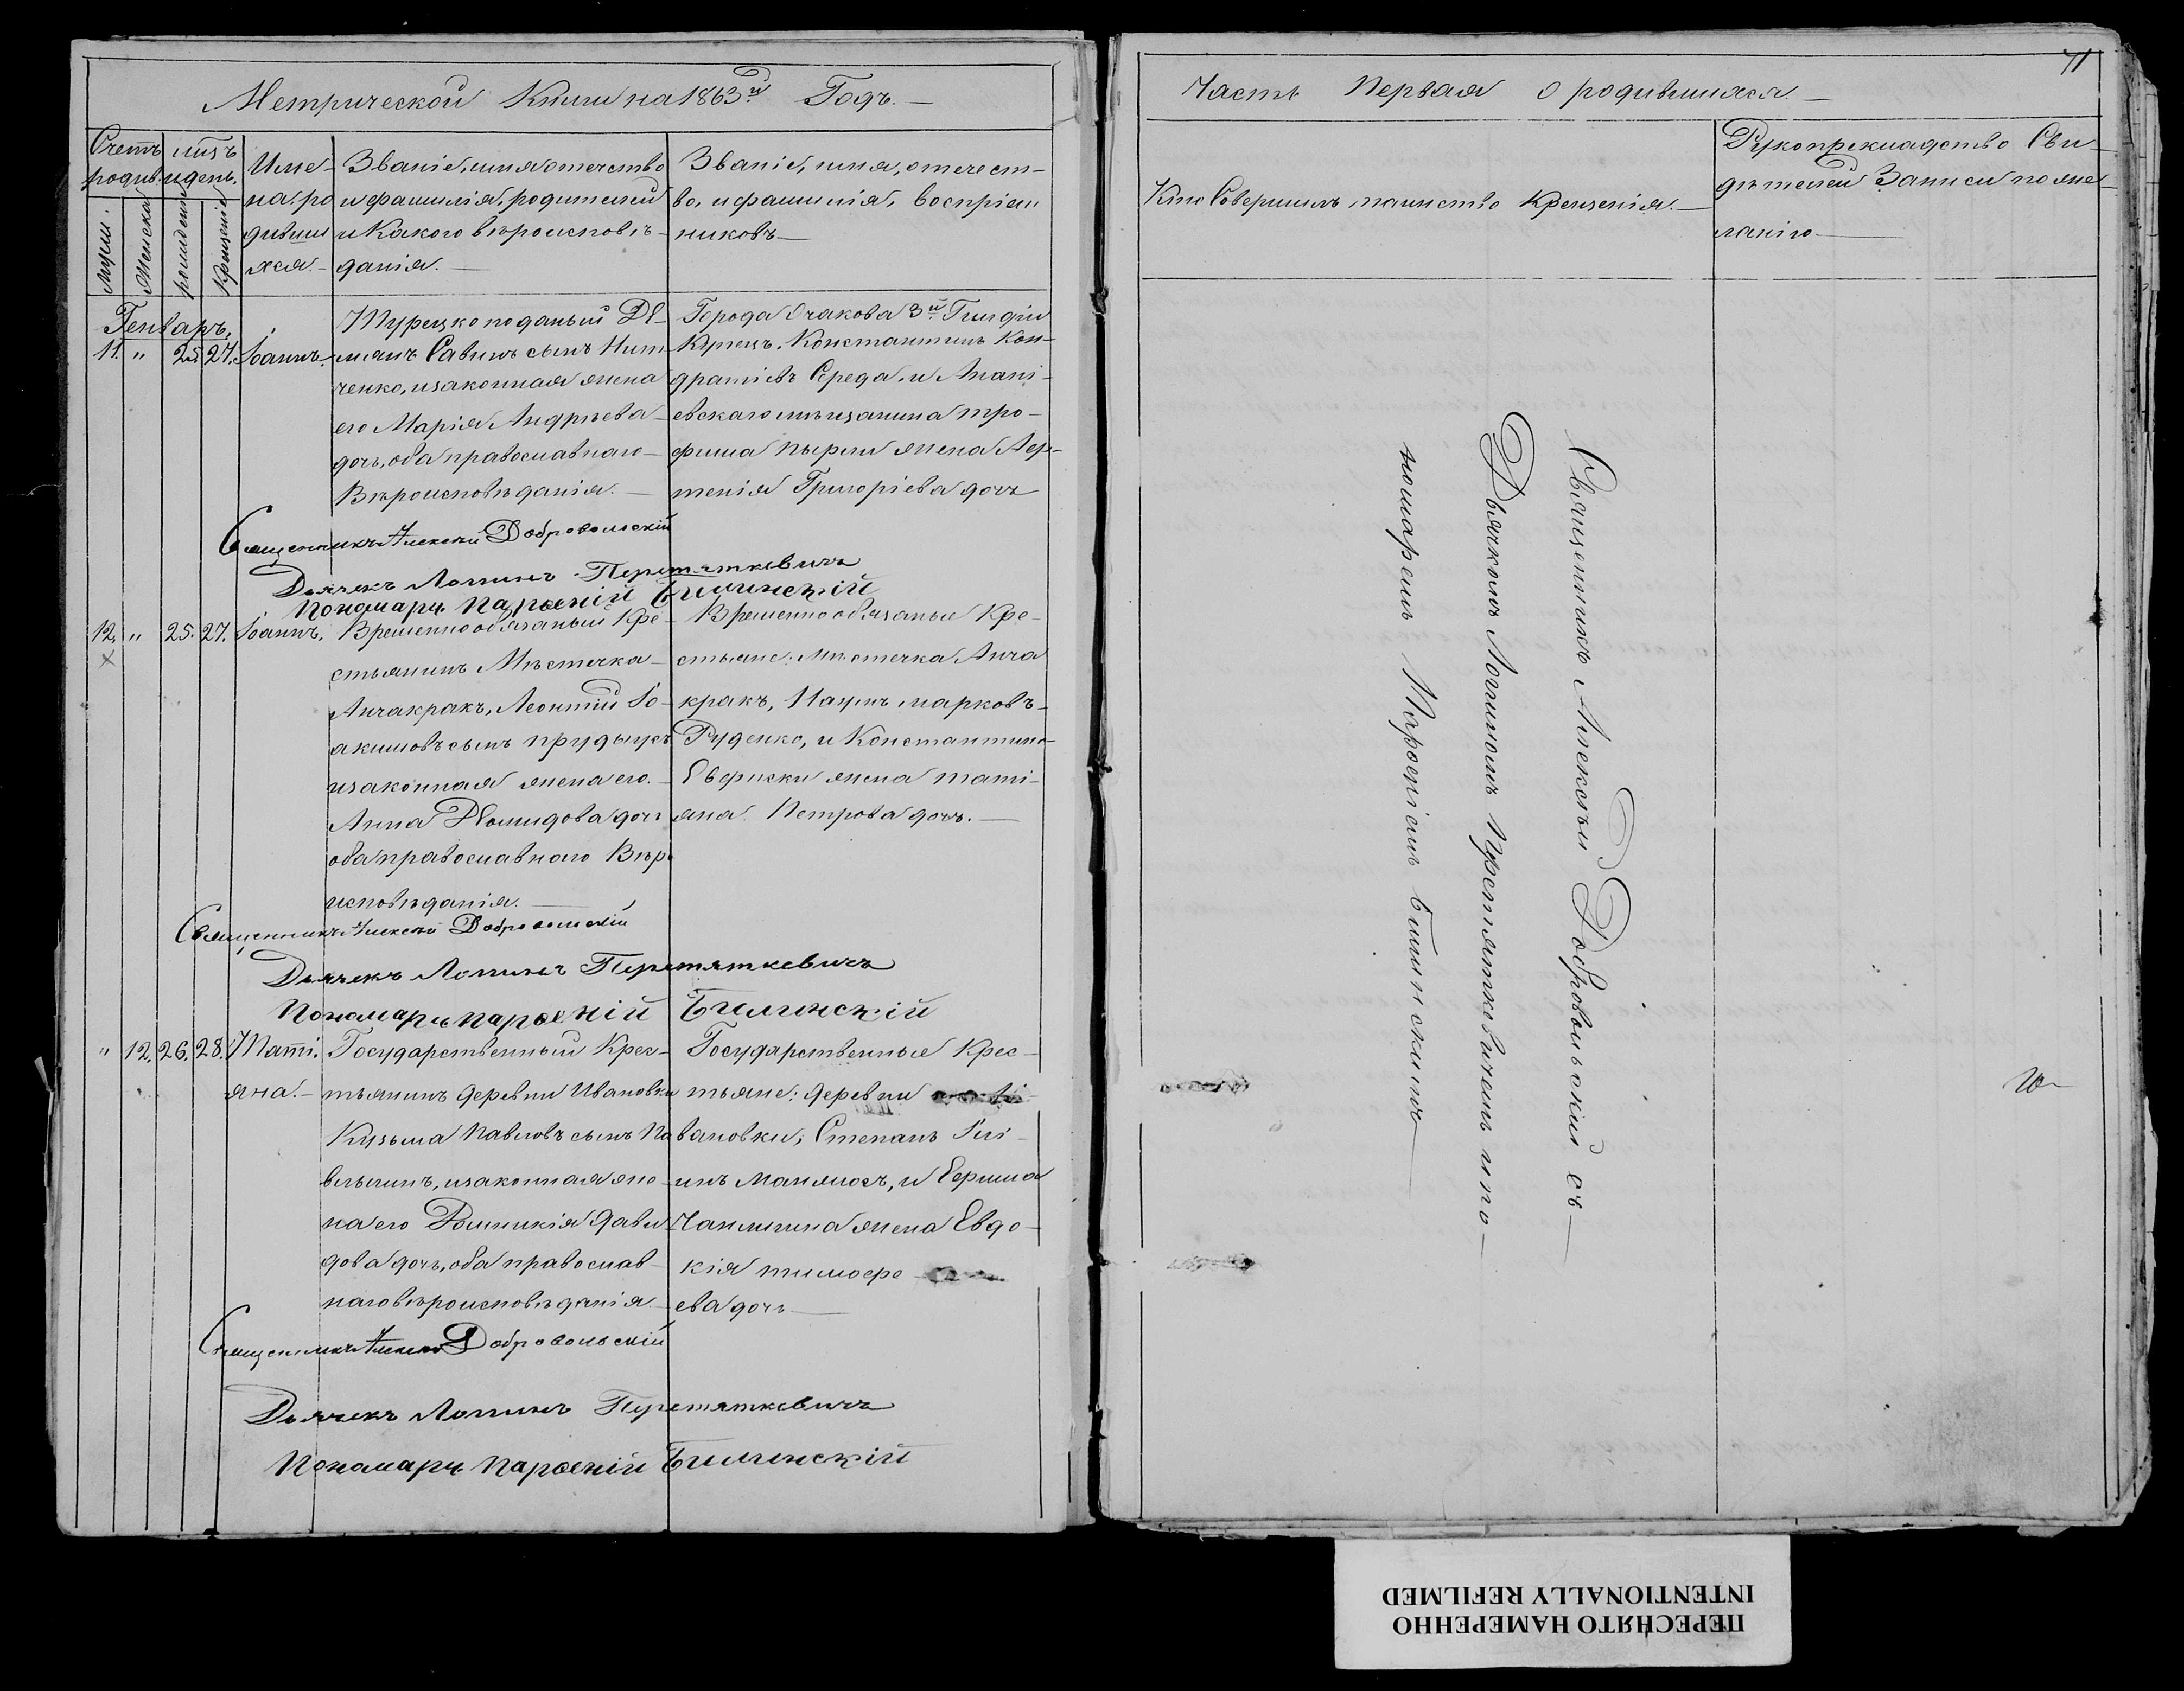 Метрической Книги на 1863й Годъ.
Счетъ родив.
мцъ и день.
Муж.
Женска
рожденія
Крещенія
Име-
на ро
дивши
хся.
Званіе, имя отечество
и фамилія, родителей
и Какого вѣроисповѣ-
данія.
Званіе, имя, отечест-
во, и фамилія, воспріем
никовъ
Генварь.
11. " 25 27. Іоаннъ.
Турецкоподаный Де-
мианъ Савинъ сынъ Нит-
ченко, изаконная жена
его Марія Андрѣева
дочь, оба православнаго
Вѣроисповѣданія.
Города Очакова 3й Гильдіи
Купецъ. Константинъ Кон-
дратіевъ Середа, и Анані-
евскаго мѣщанина тро-
фима пырли жена Авр-
тенія Григоріева дочь
Священникъ Алексѣй Добровольскій
Дьячекъ Логинъ Перетяткевичъ
Пономарь Парѳеній Билинскій
12. " 25. 27. Іоаннъ.
Временнообязаный Кре-
стьянинъ Мѣстечка
Анчакракъ, Леонтій Іо-
акимовъ сынъ прудыусъ
изаконная жена его.
Анна Демидова дочь
оба православнаго Вѣро
исповѣданія.
Временнообязаные Кре-
стьяне: Мѣстечка Анча
кракъ, Наумъ марковъ
Руденко, и Константина
Евфиски жена тати-
яна Петрова дочь.
Священникъ Алексѣй Добровольскій
Дьячекъ Логинъ Перетяткевичъ
Пономарь Парѳеній Билинскій
" 12. 26. 28. Таті.
яна.
Государственный Крес-
тьянинъ деревни Ивановки
Кузьма Павловъ сынъ Па
влычинъ, изаконная же-
на его Домникія Дави
дова дочь, оба православ
наго вѣроисповѣданія.
Государственные Крес-
тьяне: деревни
вановки, Степанъ Илі-
инъ Манжосъ, и Ефима
Чаплигина жена Евдо-
кія тимофе
ева дочь
Священникъ Алексѣй Добровольскій
Дьячекъ Логинъ Перетяткевичъ
Пономарь Парѳеній Билинскій
71
Часть Первая о родившихся.
Кто Совершилъ таинство Крещенія.
Рукоприкладство Сви-
дѣтелей Записи по же-
ланію
Священникъ Алексѣй Добровольскій съ
Дьячкомъ Логиномъ Перетяткевичемъ и по
номаремъ Парѳеніемъ Билинскимъ
ПЕРЕСНЯТО НАМЕРЕННО
INTENTIONALLY REFILMED